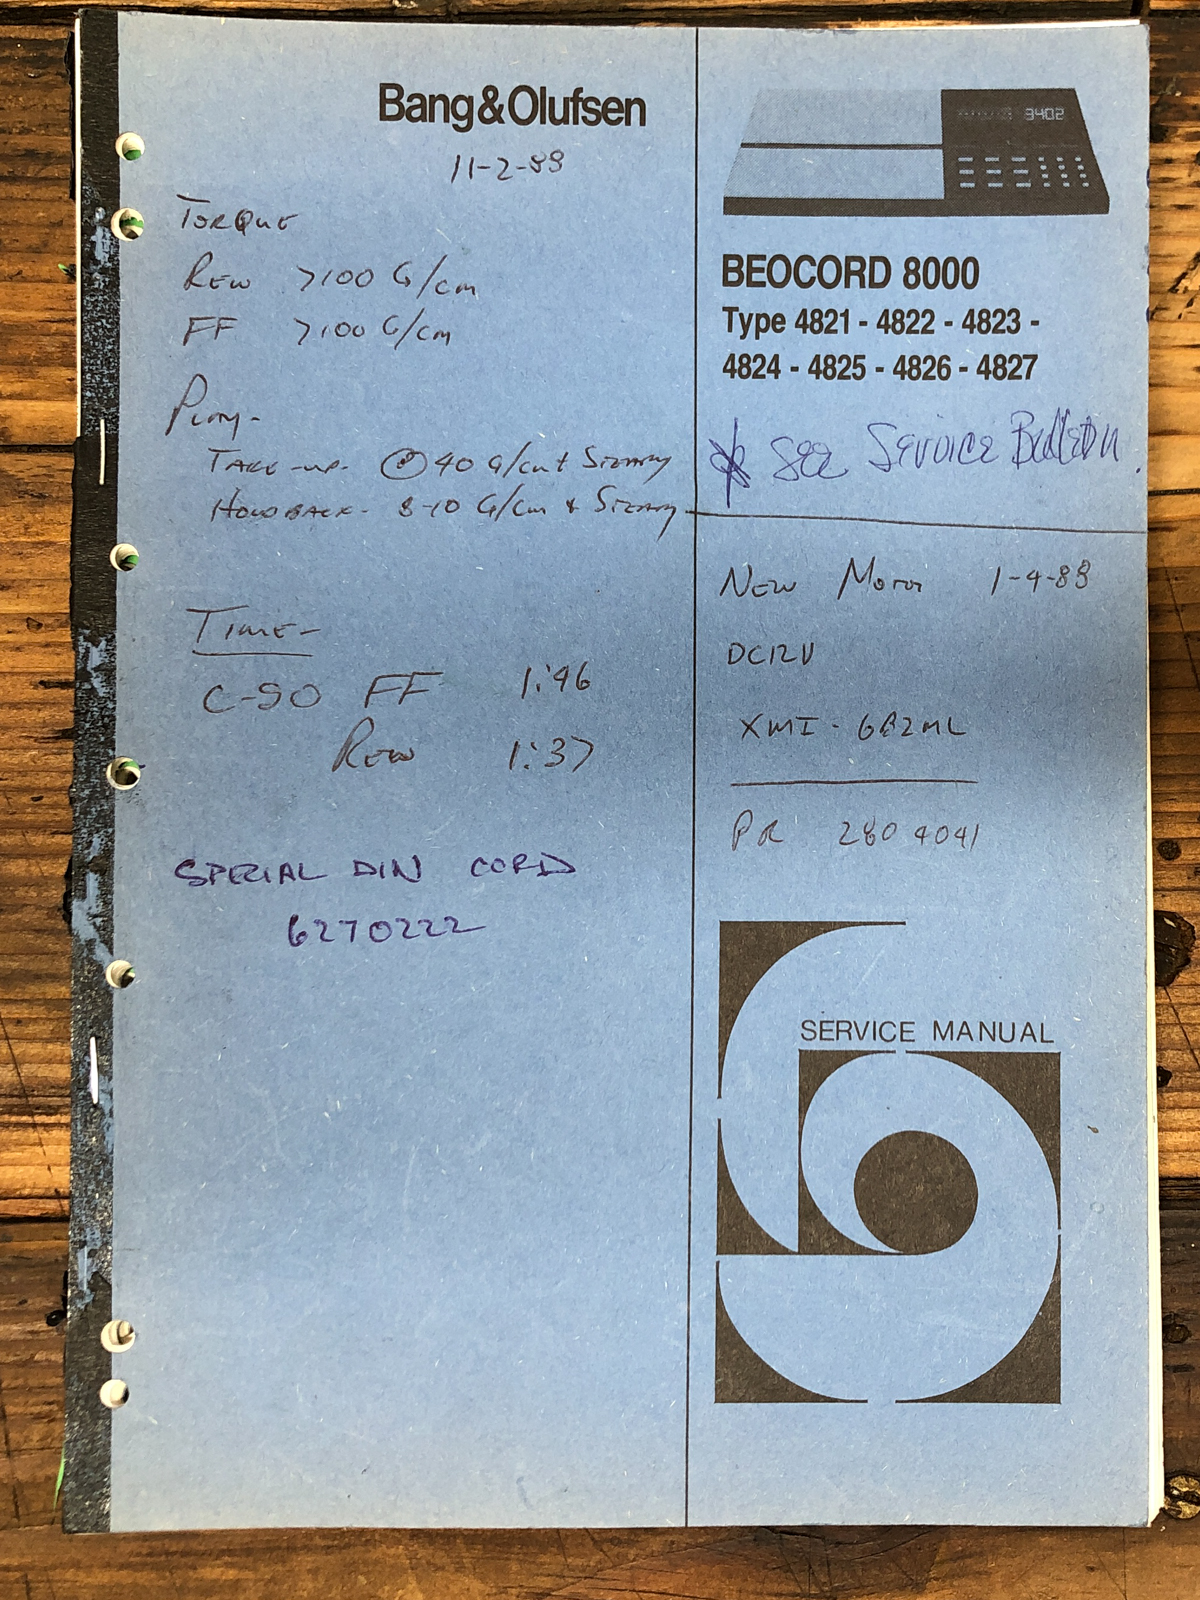 Bang&Olufsen
11-2-88
TORQUE
REW >100 G/cm
FF >100 G/cm
PLAY-
TAKE-UP- 40 G/cm + STEADY
HOLDBACK- 8-10 G/cm + STEADY
TIME-
C-90 FF 1:46
REW 1:37
SPECIAL DIN CORD
6270222
3402
BEOCORD 8000
Type 4821 - 4822 - 4823 -
4824 - 4825 - 4826 - 4827
* See Service Bulletin.
NEW MOTOR 1-4-88
DC12V
XMI-682ML
PR 2804041
SERVICE MANUAL